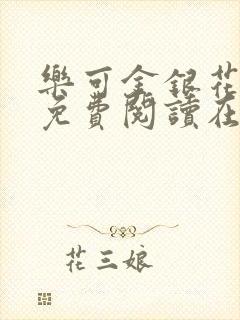 樂可金銀花
免費閱讀在
花三娘